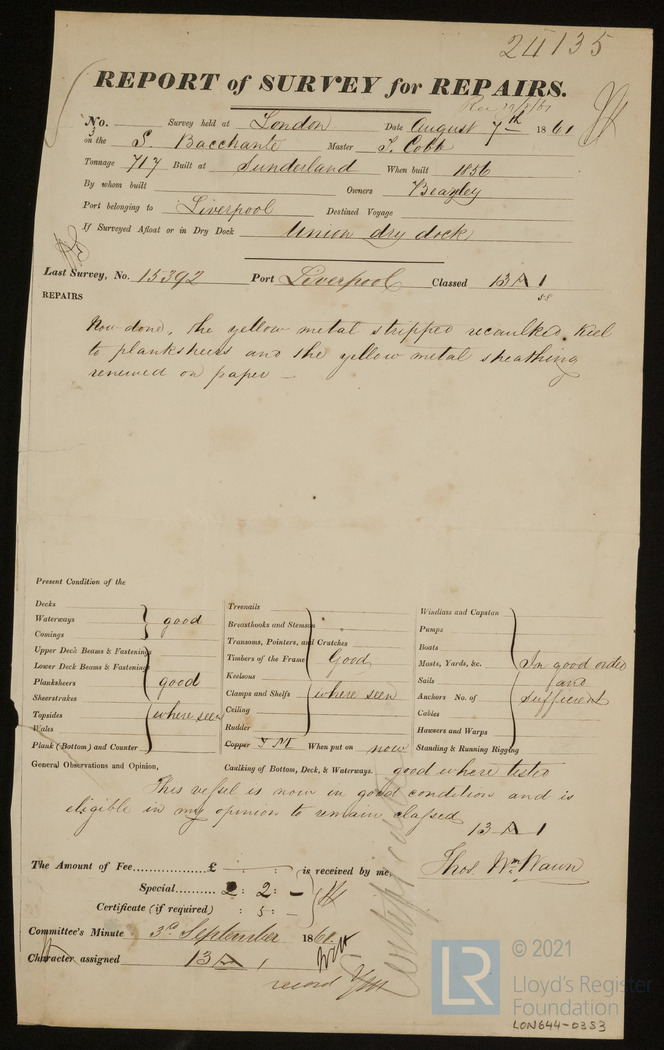 24135
REPORT of SURVEY for REPAIRS.
No. Survey held at London Date August 7th 1861
on the S. Bacchante Master J. Cobb
Tonnage 717 Built at Sunderland When built 1856
By whom built Owners Beazley
Port belonging to Liverpool Destined Voyage
If Surveyed Afloat or in Dry Dock Union dry dock
Last Survey, No. 15392 Port Liverpool Classed 13 A 1
58
REPAIRS
Now done, the yellow metal stripped recaulked Keel
to planksheers and the yellow metal sheathing
renewed on paper —
Present Condition of the
Decks
Waterways good
Comings
Upper Deck Beams & Fastenings
Lower Deck Beams & Fastenings
Planksheers good
Sheerstrakes
Topsides where seen
Wales
Plank (Bottom) and Counter
Treenails
Breasthooks and Stemson
Transoms, Pointers, and Crutches
Timbers of the Frame Good
Keelsons
Clamps and Shelfs where seen
Ceiling
Rudder
Copper Y M When put on now
Windlass and Capstan
Pumps
Boats
Masts, Yards, &c. In good order
Sails and
Anchors No. of sufficient
Cables
Hawsers and Warps
Standing & Running Rigging
General Observations and Opinion, Caulking of Bottom, Deck, & Waterways. good where tested
This vessel is now in good condition and is
eligible in my opinion to remain classed
13 A 1
The Amount of Fee £ : : is received by me,
Thos. Wm. Wawn
Special 2 : 2 : —
Certificate (if required) : 5 : —
Committee's Minute 3rd September 1861
Character assigned 13 A 1
record
LR
© 2021
Lloyd's Register
Foundation
LON644-0383